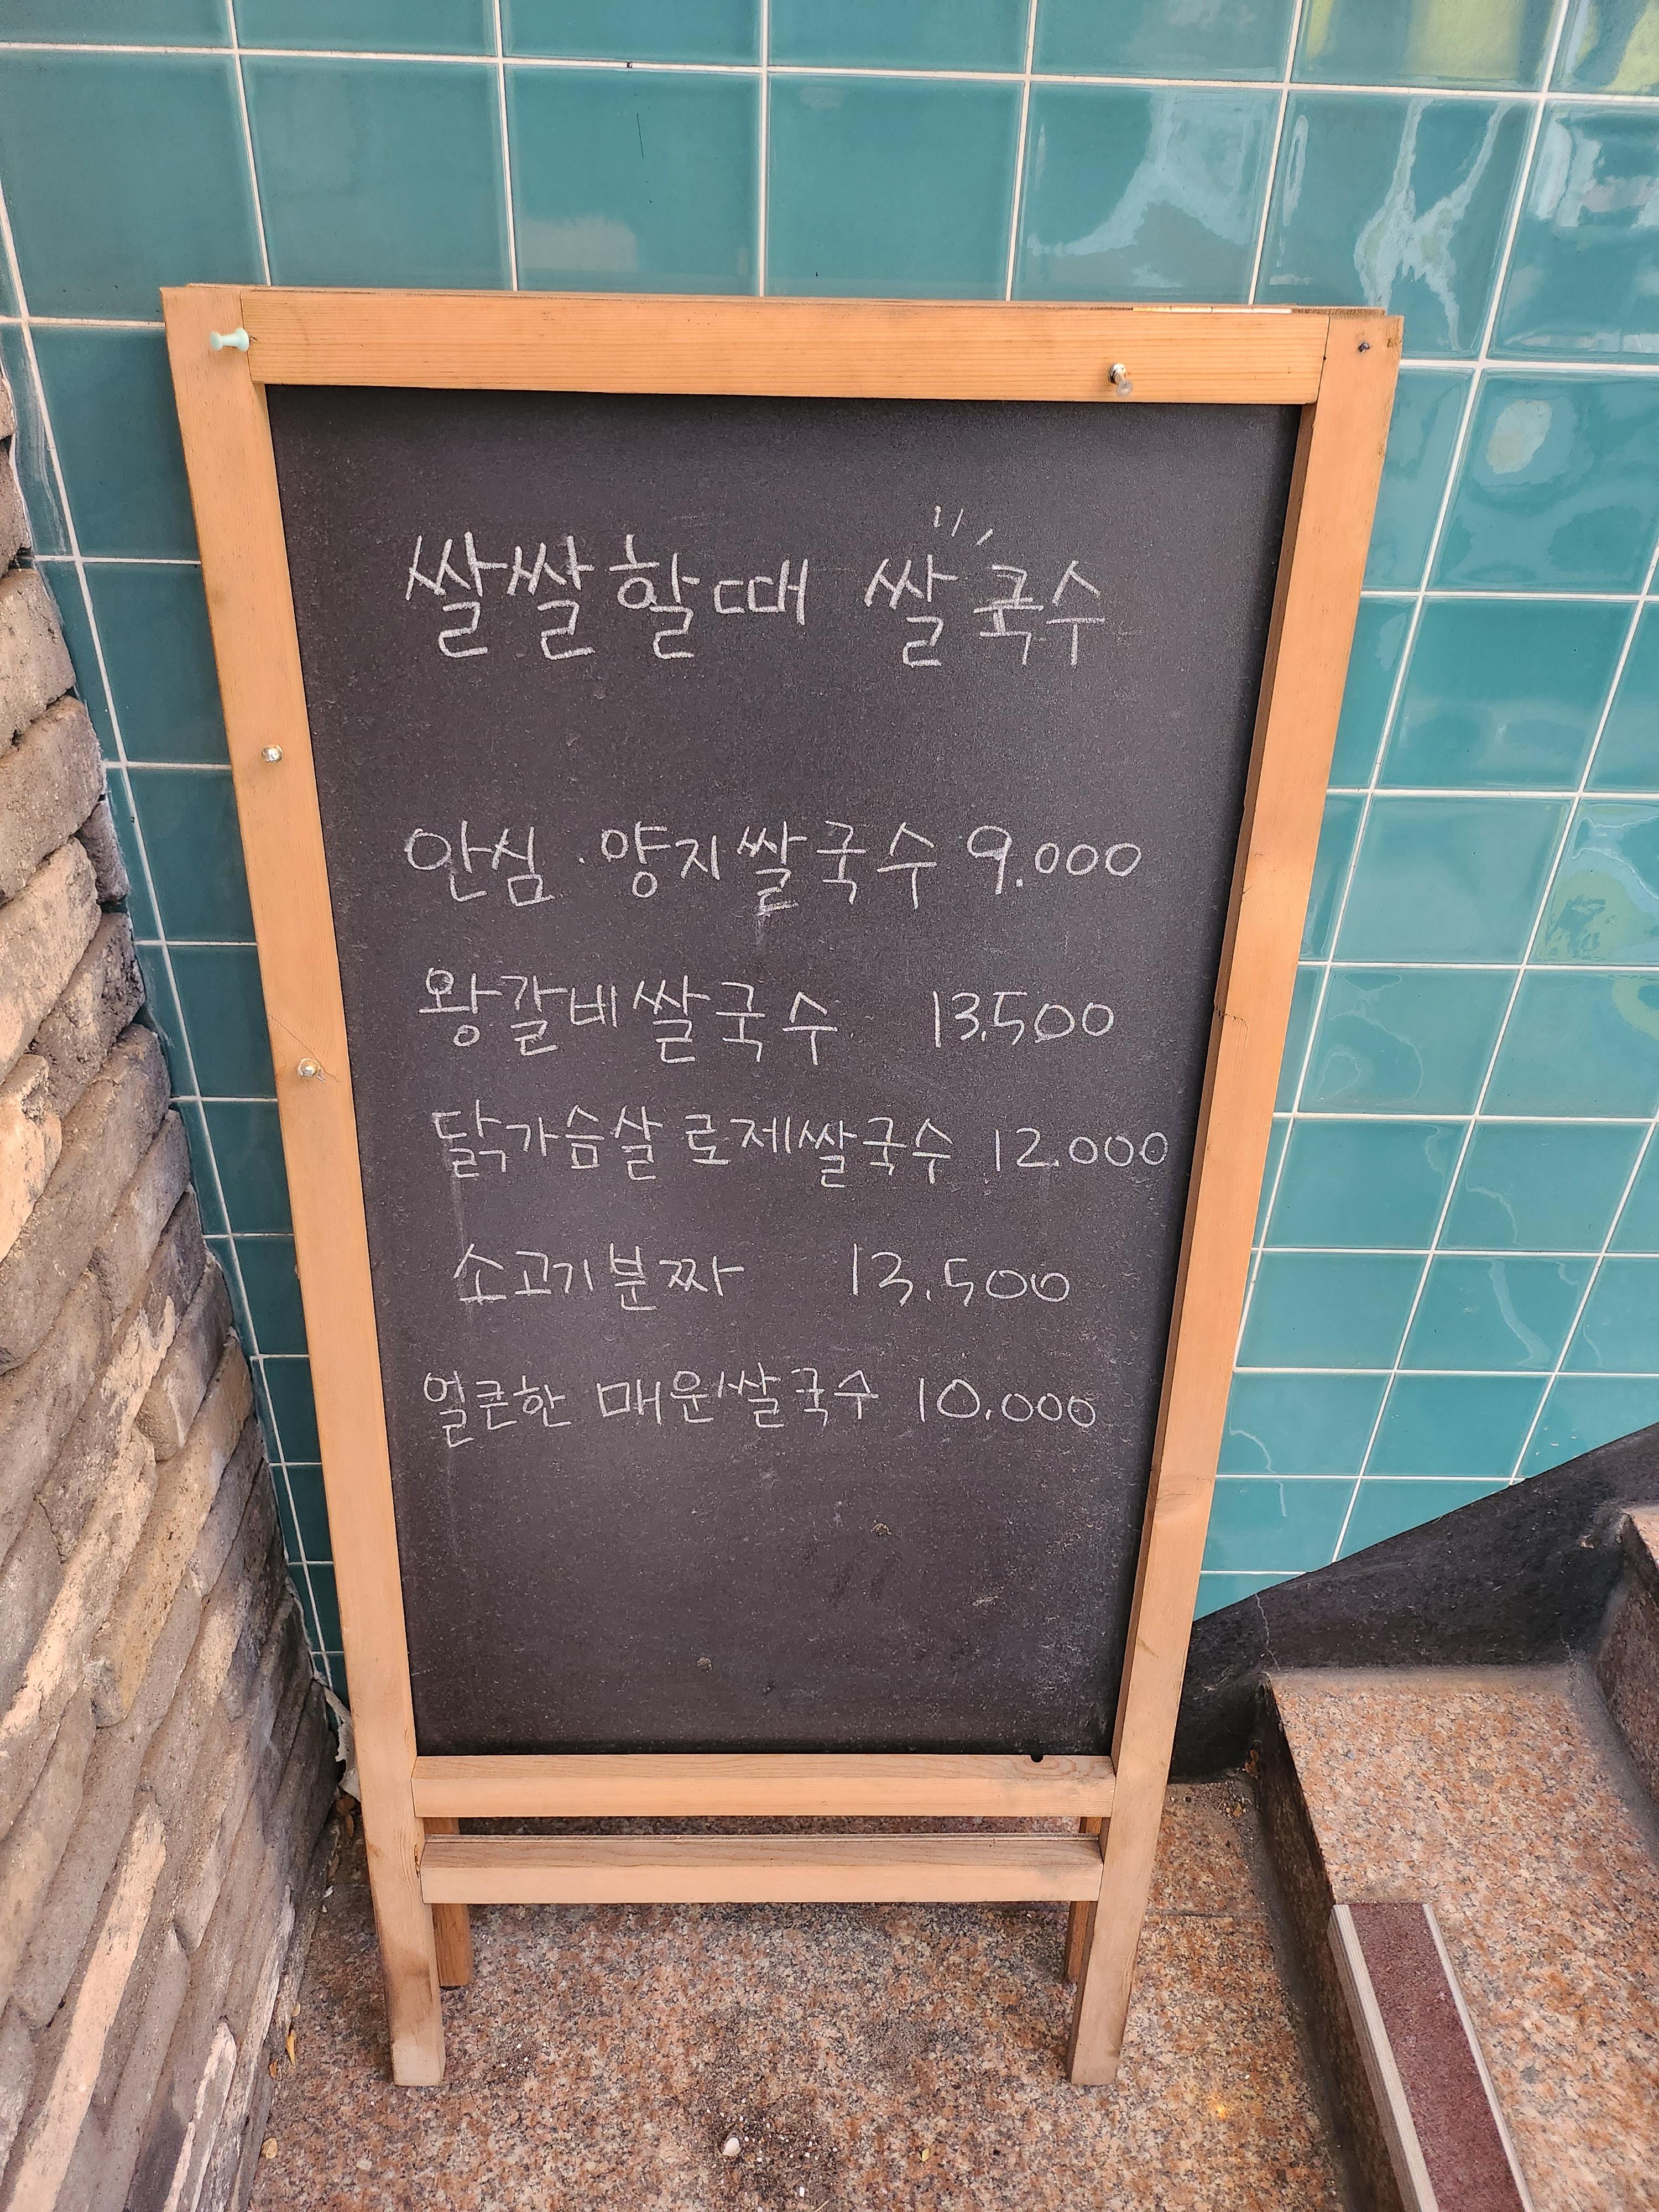 쌀쌀할때 쌀국수
안심·양지쌀국수 9.000
왕갈비쌀국수 13.500
닭가슴살 로제쌀국수 12.000
소고기분짜 13.500
얼큰한 매운쌀국수 10.000